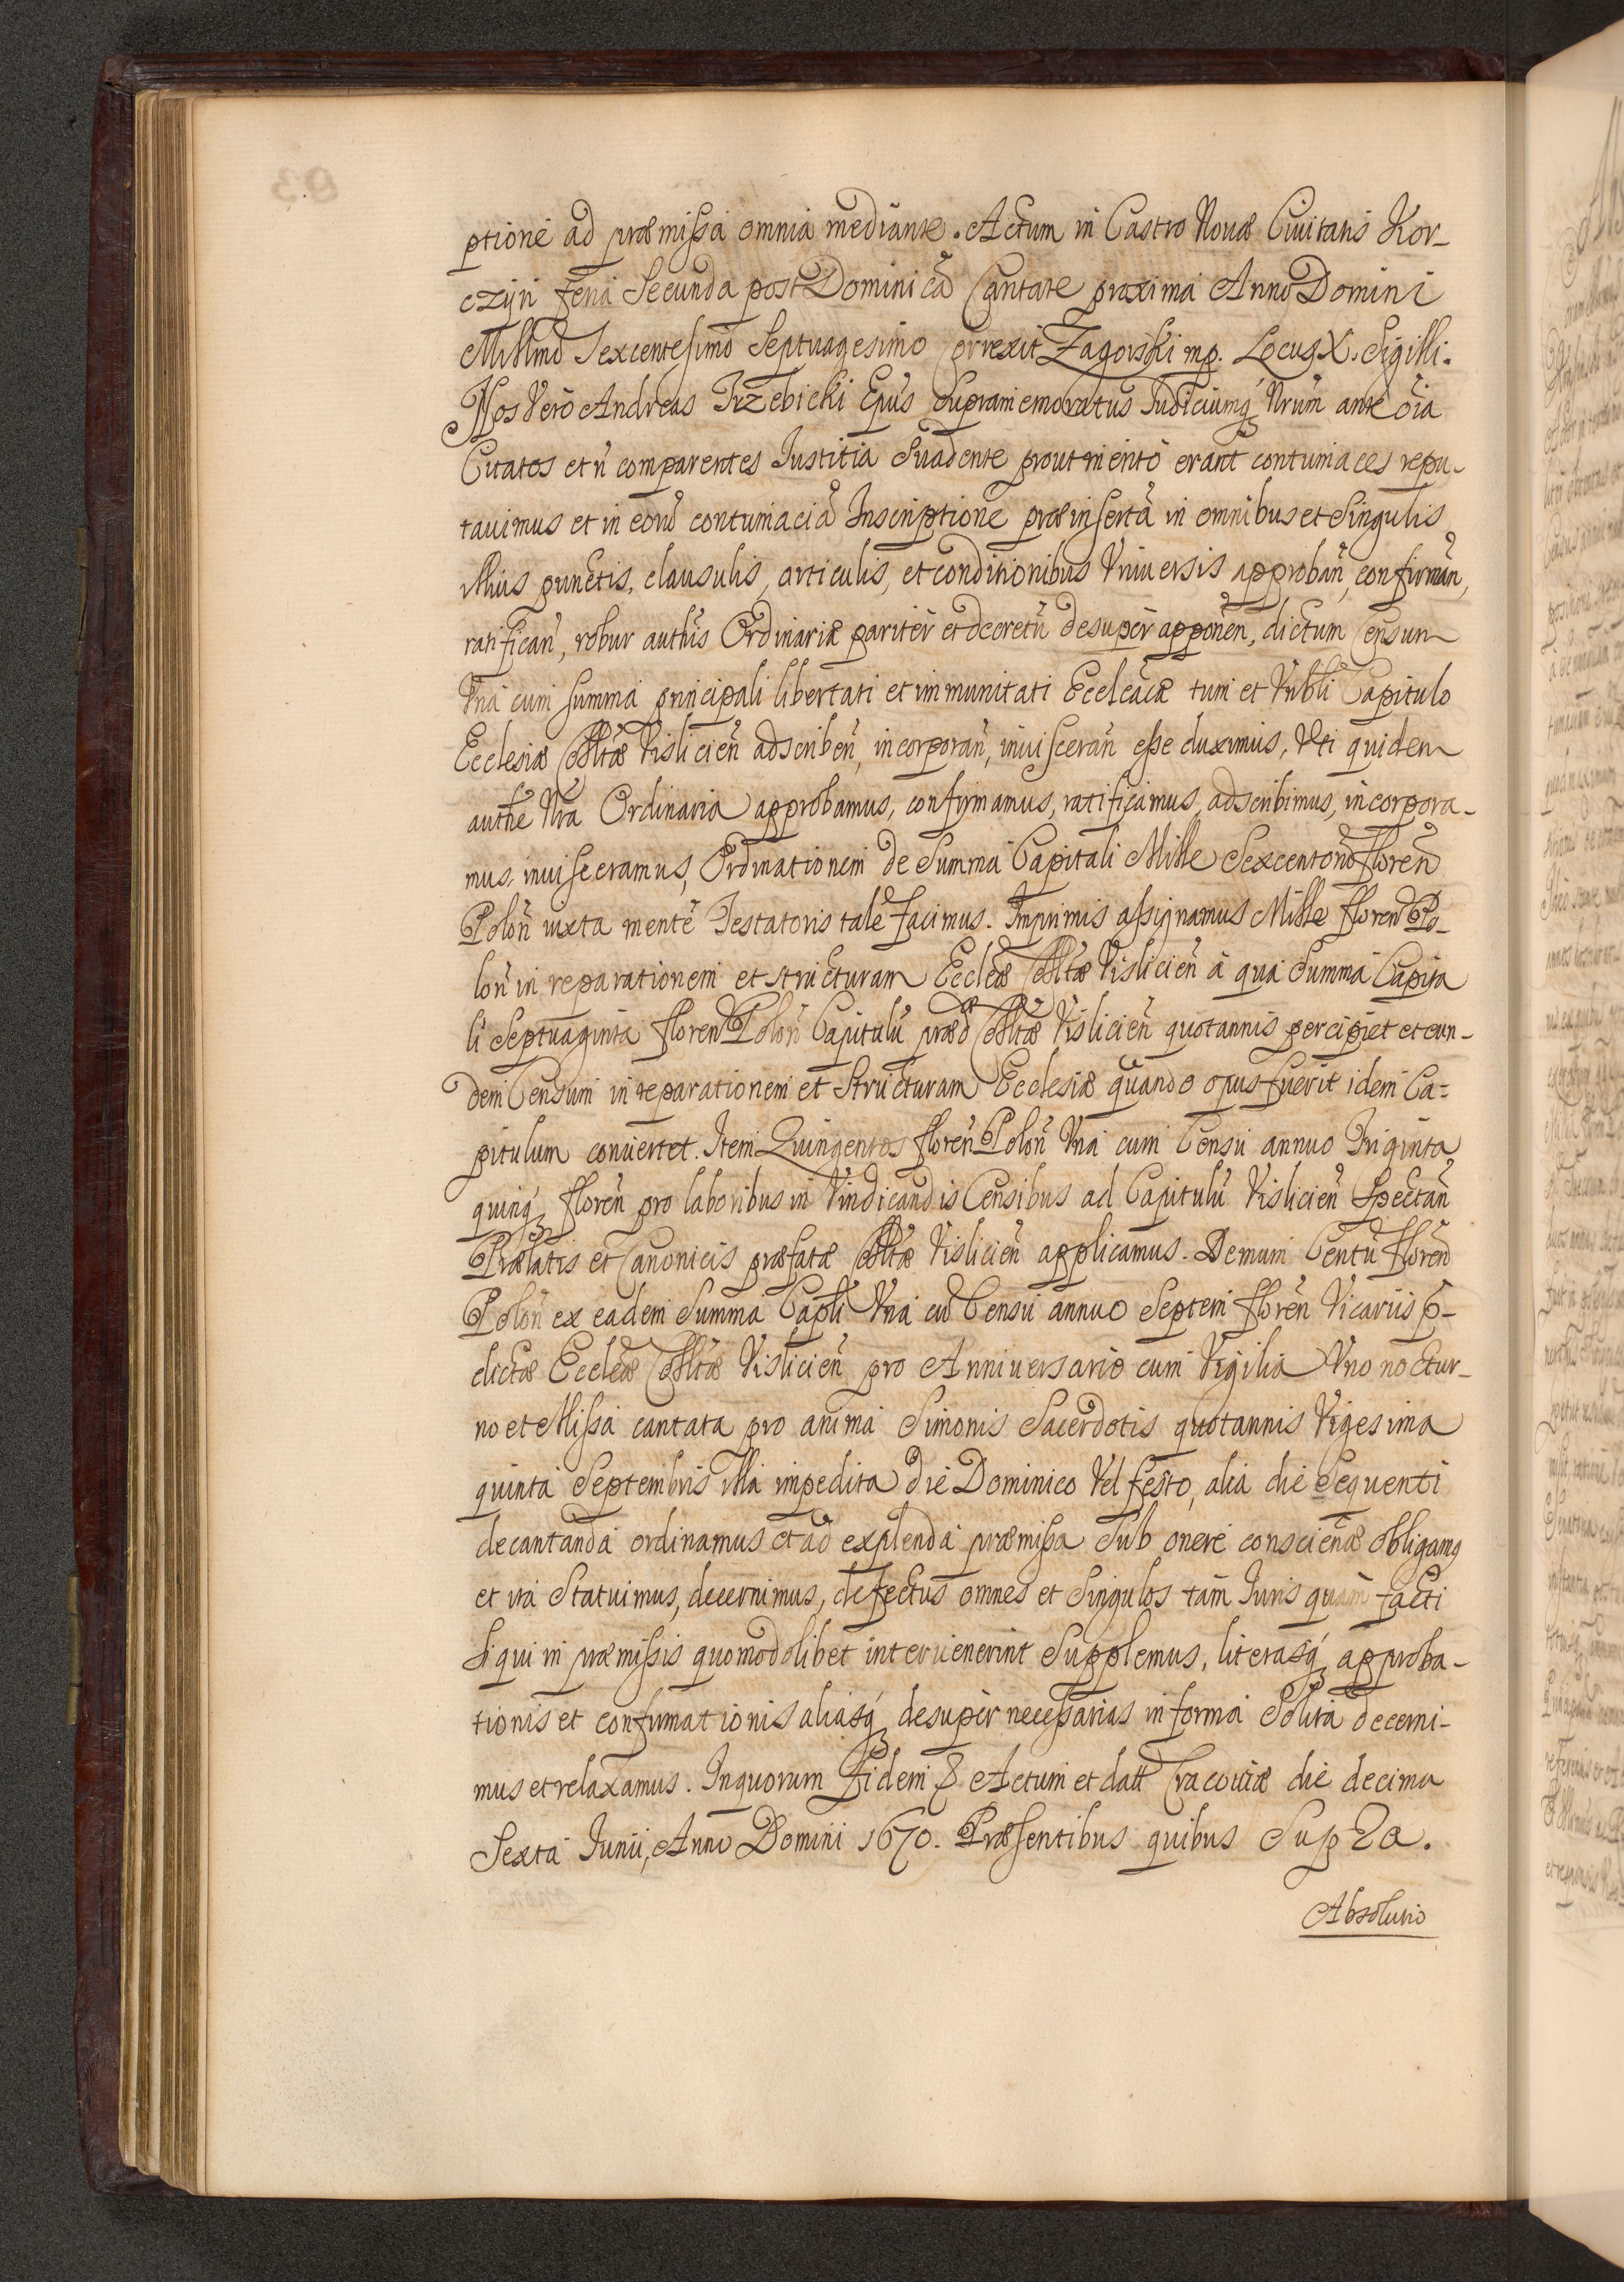 ptione ad præmissa omnia mediante. Actum in Castro Novæ Civitatis Kor-
czyn feria Secunda post Dominicã Cantate proxima Anno Domini
Millmo Sexcentesimo Septuagesimo Correxit Zagorski mp. Locus X. Sigilli.
Nos Vero Andreas Trzebicki Epus Supramemoratus Judiciumq Nrum ante oia
Citatos et ñ comparentes Justitia Suadente prout merito erant contumaces repu-
tavimus et in eorũ contumaciã Inscriptionẽ præinsertã in omnibus et Singulis
illius punctis, clausulis, articulis, et conditionibus Universis approbañ, confirmañ,
ratificañ, robur authis Ordinariæ pariter et decretũ desuper apponeñ, dictum Censum
Vna cum summa principali libertati et immunitati Eccleacæ tum et Vnbli Capitulo
Ecclesiæ Colltæ Vislicieñ adscribeñ, incorporañ, invisceran esse duximus, Vti quidem
authe Nra Ordinaria approbamus, confirmamus, ratificamus, adscribimus, incorpora-
mus, invisceramus, Ordinationem de Summa Capitali Mille Sexcentorũ floreñ
Poloñ iuxta mentẽ Testatoris talẽ facimus. Imprimis assignamus Mille floreñ Po-
loñ in reparationem et structuram Eccleæ Colltæ Vislicieñ a qua Summa Capita
li Septuaginta floreñ Poloñ Capitulũ præd Colltæ Vislicieñ quotannis percipiet et eun-
dem Censum in reparationem et Structuram Ecclesiæ quando opus fuerit idem Ca-
pitulum convertet. Item Quingentos floreñ Poloñ Vna cum Censu annuo Triginta
quinq floreñ pro laboribus in Vindicandis Censibus ad Capitulũ Vislicieñ Spectañ
Prælatis et Canonicis præfatæ Colltæ Vislicieñ applicamus. Demum Centũ floreñ
Poloñ ex eadem Summa Capli Vna cũ Censu annuo Septem floreñ Vicariis p-
dictæ Eccleæ Colltæ Vislicieñ pro Anniversario cum Vigilia Vno noctur-
no et Missa cantata pro anima Simonis Sacerdotis quotannis Vigesima
quinta Septembris illa impedita die Dominico Vel festo, alia die Sequenti
decantanda ordinamus et ad explenda præmissa Sub onere conscienæ obligamq
et ita Statuimus, decernimus, defectus omnes et Singulos tam Juris quam facti
Si qui in præmissis quomodolibet intervenerint Supplemus, literasq approba-
tionis et confirmationis aliasq desuper necessarias in forma Solita decerni-
mus et relaxamus. In quorum fidem & Actum et datt Cracoviæ die decima
Sexta Junii, Anno Domini 1670. Præsentibus quibus Supra.
Absolutio